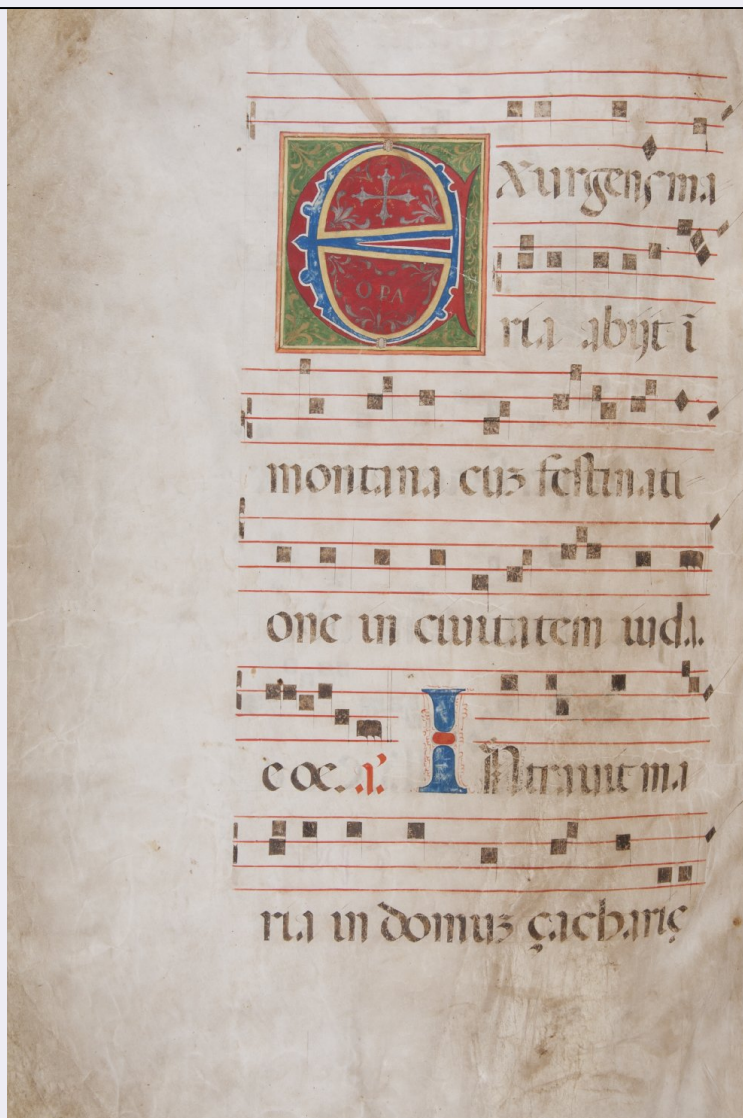 Exurgens ma
OPA
ria abijt ī
montana cuʒ festinati
one in ciuitatem iuda.
e oe. a'. Intrauit ma
ria in domuʒ çacharię